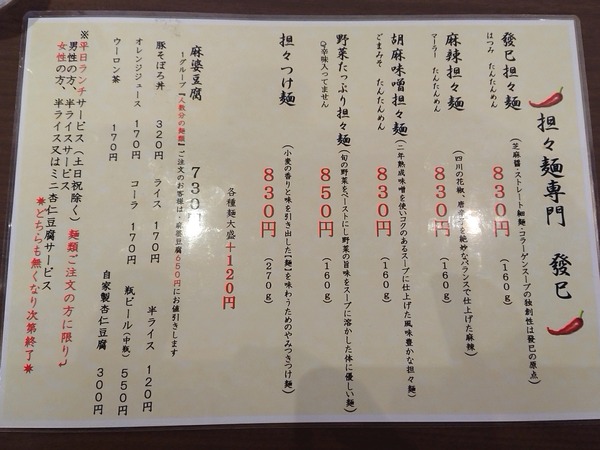 担々麺専門 發巳
發巳担々麺 830円
はつみ たんたんめん
(芝麻醤・ストレート細麺・コラーゲンスープの独創性は發巳の原点)
(160g)
麻辣担々麺 830円
マーラー たんたんめん
(四川の花椒、唐辛子を絶妙なバランスで仕上げた麻辣)
(160g)
胡麻味噌担々麺 830円
ごまみそ たんたんめん
(二年熟成味噌を使いコクのあるスープに仕上げた風味豊かな担々麺)
(160g)
野菜たっぷり担々麺 850円
辛味入ってません
(旬の野菜をペーストにし野菜の旨味をスープに溶かした体に優しい麺)
(160g)
担々つけ麺 830円
(小麦の香りと味を引き出した【麺】を味わうためのやみつきつけ麺)
(270g)
各種麺大盛+120円
麻婆豆腐 730円
1グループ『人数分の麺類』ご注文のお客様は、麻婆豆腐650円にお値引きします
豚そぼろ丼 320円 ライス 170円 半ライス 120円
オレンジジュース 170円 コーラ 170円 瓶ビール(中瓶) 550円
ウーロン茶 170円 自家製杏仁豆腐 300円
※平日ランチサービス(土日祝除く) 麺類ご注文の方に限り
男性の方、半ライスサービス
女性の方、半ライス又はミニ杏仁豆腐サービス
＊どちらも無くなり次第終了＊